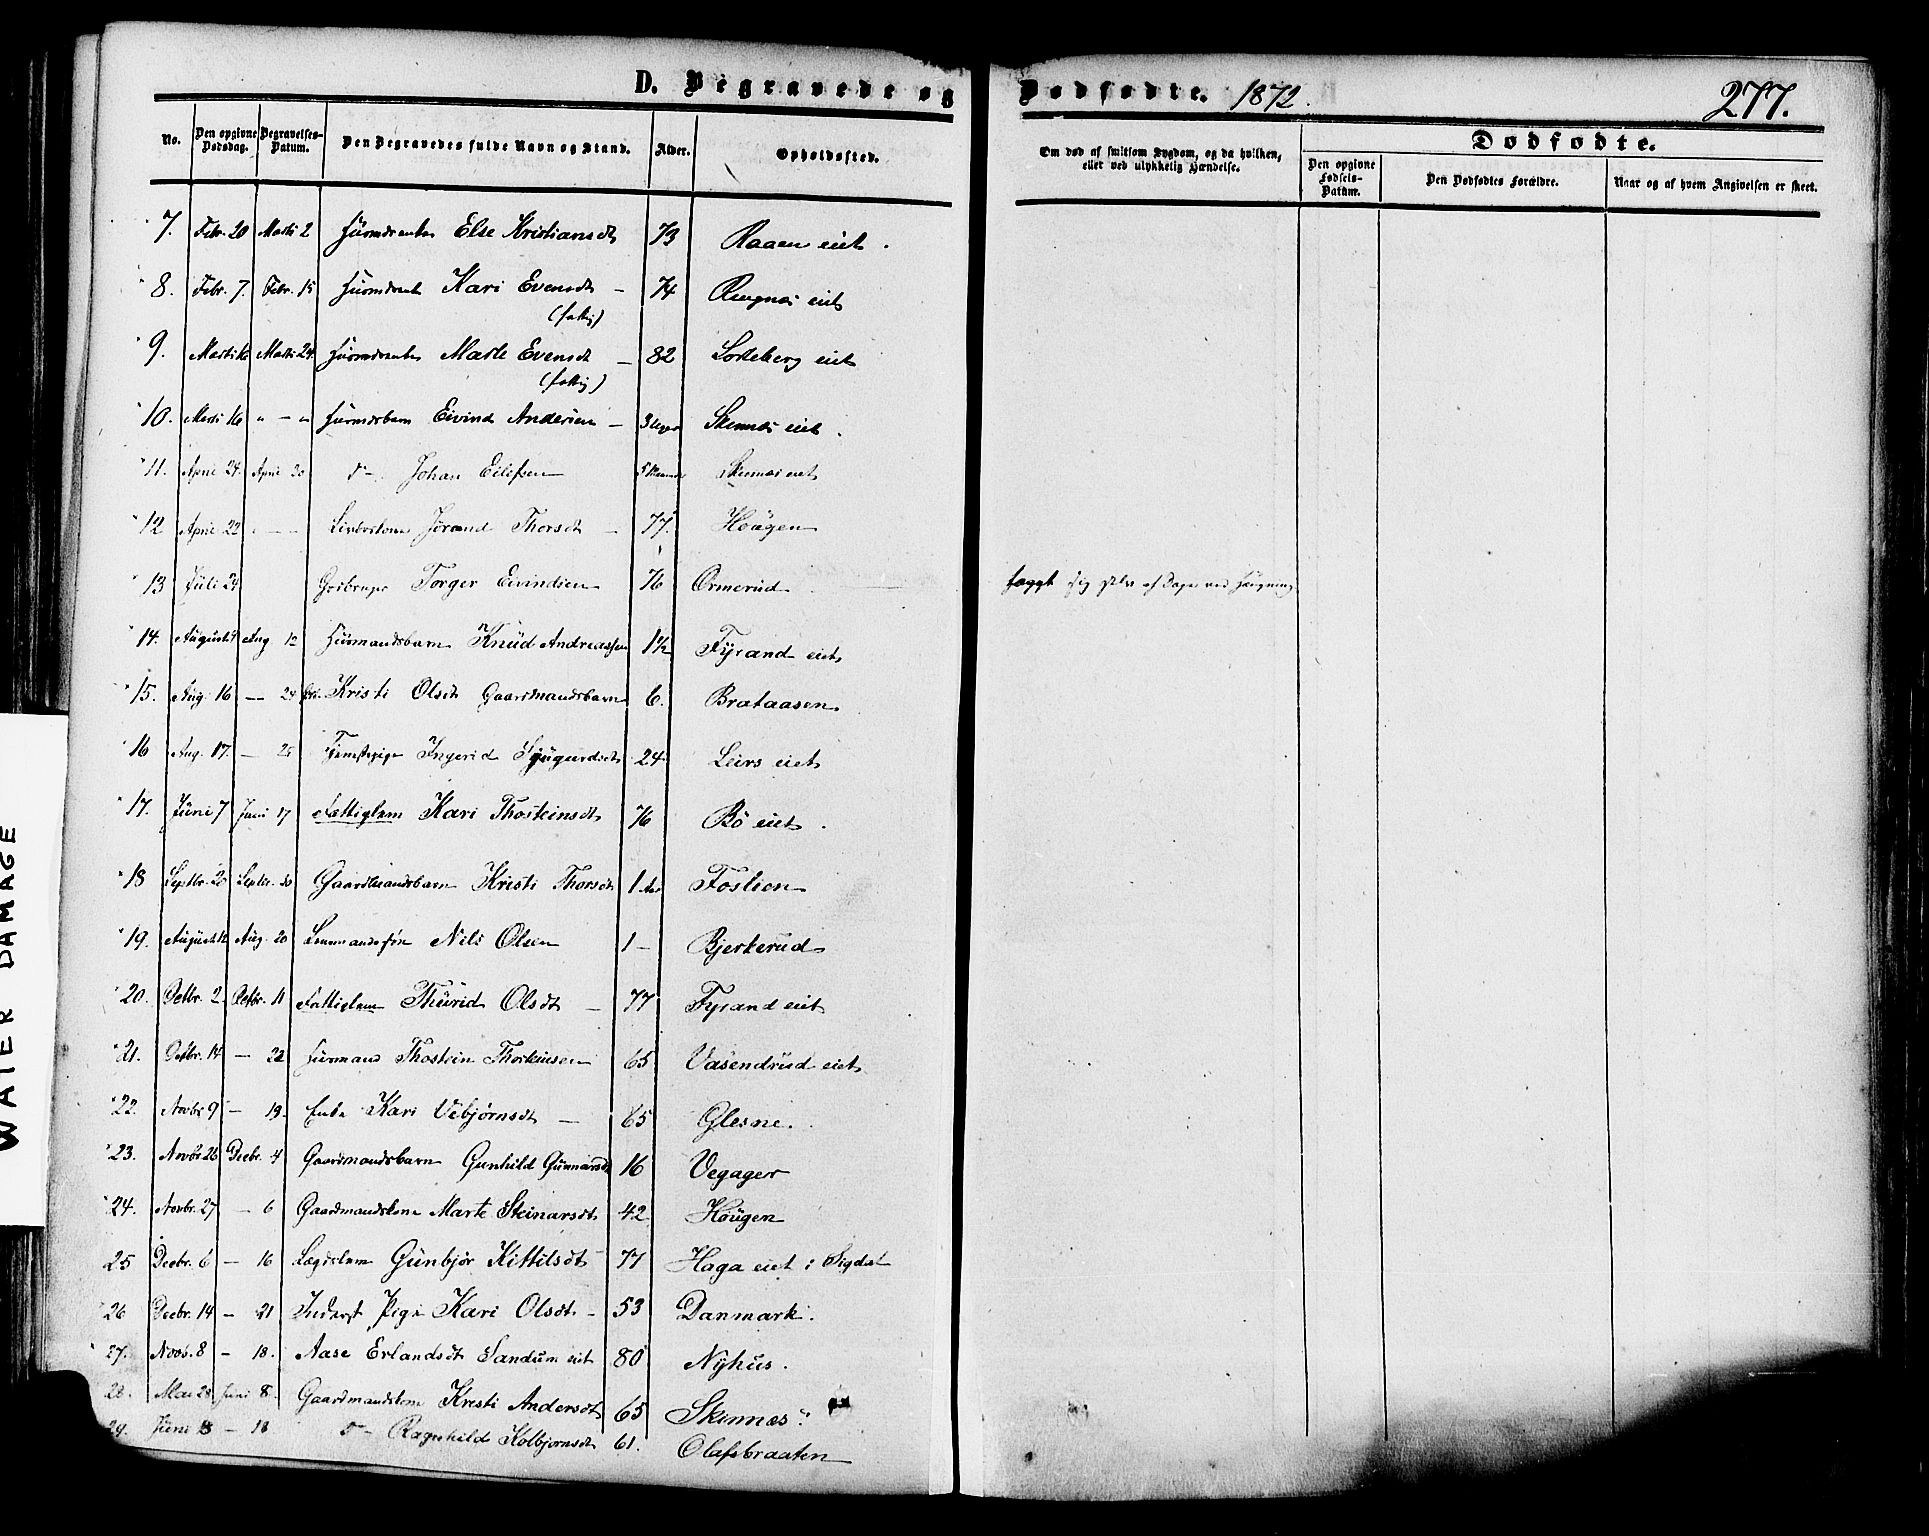 D. Begravede og Dødfødte. 1872. 277.
No. Den opgivne Dødsdag. Begravelses-Datum. Den Begravedes fulde Navn og Stand. Alder. Opholdssted. Om død af smitsom Sygdom, og da hvilken, eller ved ulykkelig Hændelse. Dødfødte.
Den opgivne Fødsels-Datum. Den Dødfødtes Forældre. Naar og af hvem Angivelsen er skeet.
7. Febr. 20 Marts 2 Else Kristiansdt 73 Raaen eiet.
8. Febr. 7. Febr. 15 Kari Evensdt – 74 Ringnæs eiet
(fattig)
9. Marts Marts 24 Marte Evensdt – 82 Sorteberg eiet
(fattig)
10. Marts 16 " – " Husmdsbarn Eivind Andersen – 3 Uger Skinnæs eiet.
11. April 24. April 30 d– Johan Eilifsen 5 Skinnæs eiet
12 April 22 Jørand Thorsdt – 77. Hougen
13 Juli 24 Torger Eivindsen 76 Ormerud lagt sig selv af Dage ved Hængning
14. August Aug 12 Husmandsbarn Knud Andreassen 1½ Fyrand eiet
15. Aug. 16 – 24 Kristi Olsdt Gaardmandsbarn 6. Brataasen
16 Aug. 17. – 25 Tjenstepige Ingerid Sjugurdsdt 24. Leirs eiet
17. Juni 7 Juni 17 Fattiglem Kari Thosteinsdt 76 Bø eiet.
18 Septbr. 20 Septbr. 30 Gaardmandsbarn Kristi Thorsdt 1 Aar Fostion
19. August 12 Aug. 20 Nils Olsen 1 – Bjerkerud
20. Octbr. 2. Octbr. 11 Fattiglem Thurid Olsdt – 77 Fyrand eiet
21. Octbr. 14 – 22 Husmand Thostein Thorkilsen 65 Vasendrud eiet
22. Novbr 9 – 19. Enke Kari Vebjørnsdt – 65 Glesne.
23. Novbr 26 Decbr. 4 Gaardmandsbarn Gunhild Gunnarsdt 16 Vegager
24. Novbr. 27 – 6 Gaardmandskone Marte Steinarsdt 42 Hougen
25 Decbr. 6 – 16 Lægdslem Gunbjør Kittilsdt 77 Haga eiet i Sigdal
26 Decbr. 14 – 21 Inderst Pige Kari Olsdt – 53 Danmark.
27. Novb. 8 – 18. Aase Erlandsdt Sandum eiet 80 Nyhus.
28. Mai 28 Juni 8. Gaardmandskone Kristi Andersdt 65 Skinnæs
29. Juni 8 – 18 d– Ragnhild Kolbjørnsdt 61. Olafsbraaten
WATER DAMAGE